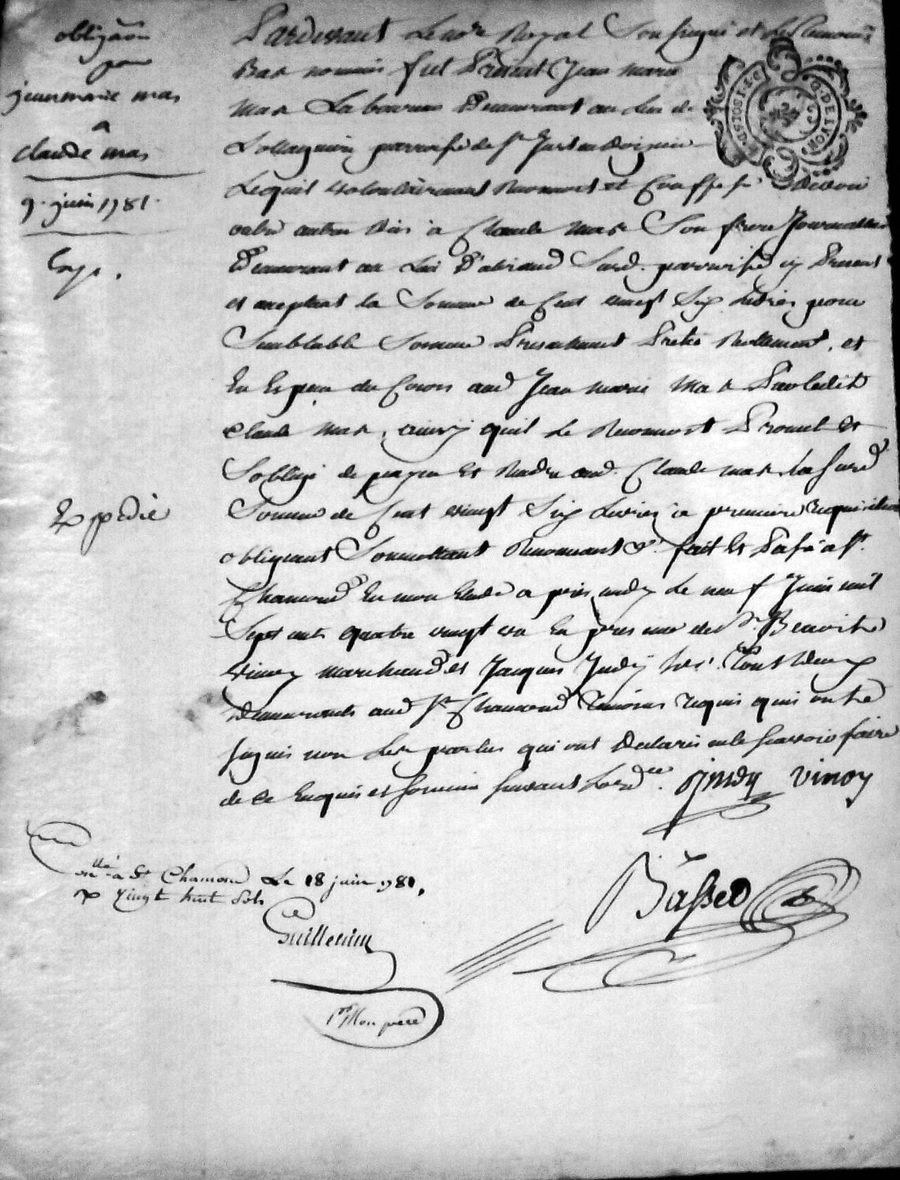 obligãon
par
jean marie mas
a
claude mas
9. juin 1781.
Expedié
Pardevant Le nore Royal Soussigné et les temoins
Bas nommés fut Present Jean marie
mas Laboureur Demeurant au lieu de
parroisse de St Just en Doizieu
Lequel volontairement Reconnoit et Confesse Devoir
a Claude mas Son frere Journallier
Demeurant au Lieu parroisse cy Present
et aceptant la Somme de Cent vingt Six Livres pour
Semblable Somme Presentement Pretée Réellement, et
En Especes de Cours aud Jean marie mas Par ledit
Claude mas, ainsy qu'il Le Reconnoit Promet et
S'oblige de payer et Rendre aud. Claude mas la Susd
Somme de Cent vingt Six Livres a premiere requisition
obligeant Soumettant Renonceant &c. fait et Passé a St.
Chamond En mon Etude apres midy Le neuf Juin mil
Sept cents quatre vingt un En presence de Sr. Benoit
Vinoy marchand et Jacques Judy tous Deux
Demeurants aud St Chamond temoins requis qui ont
signés non Les parties qui ont Declarés ne le scavoir faire
de ce Enquis et sommés suivant L'ord.ce Jjudy vinoy
Conllé a St Chamond Le 18 juin 1781,
R vingt huit sols
Guillemin
Basset
pr Mon pere